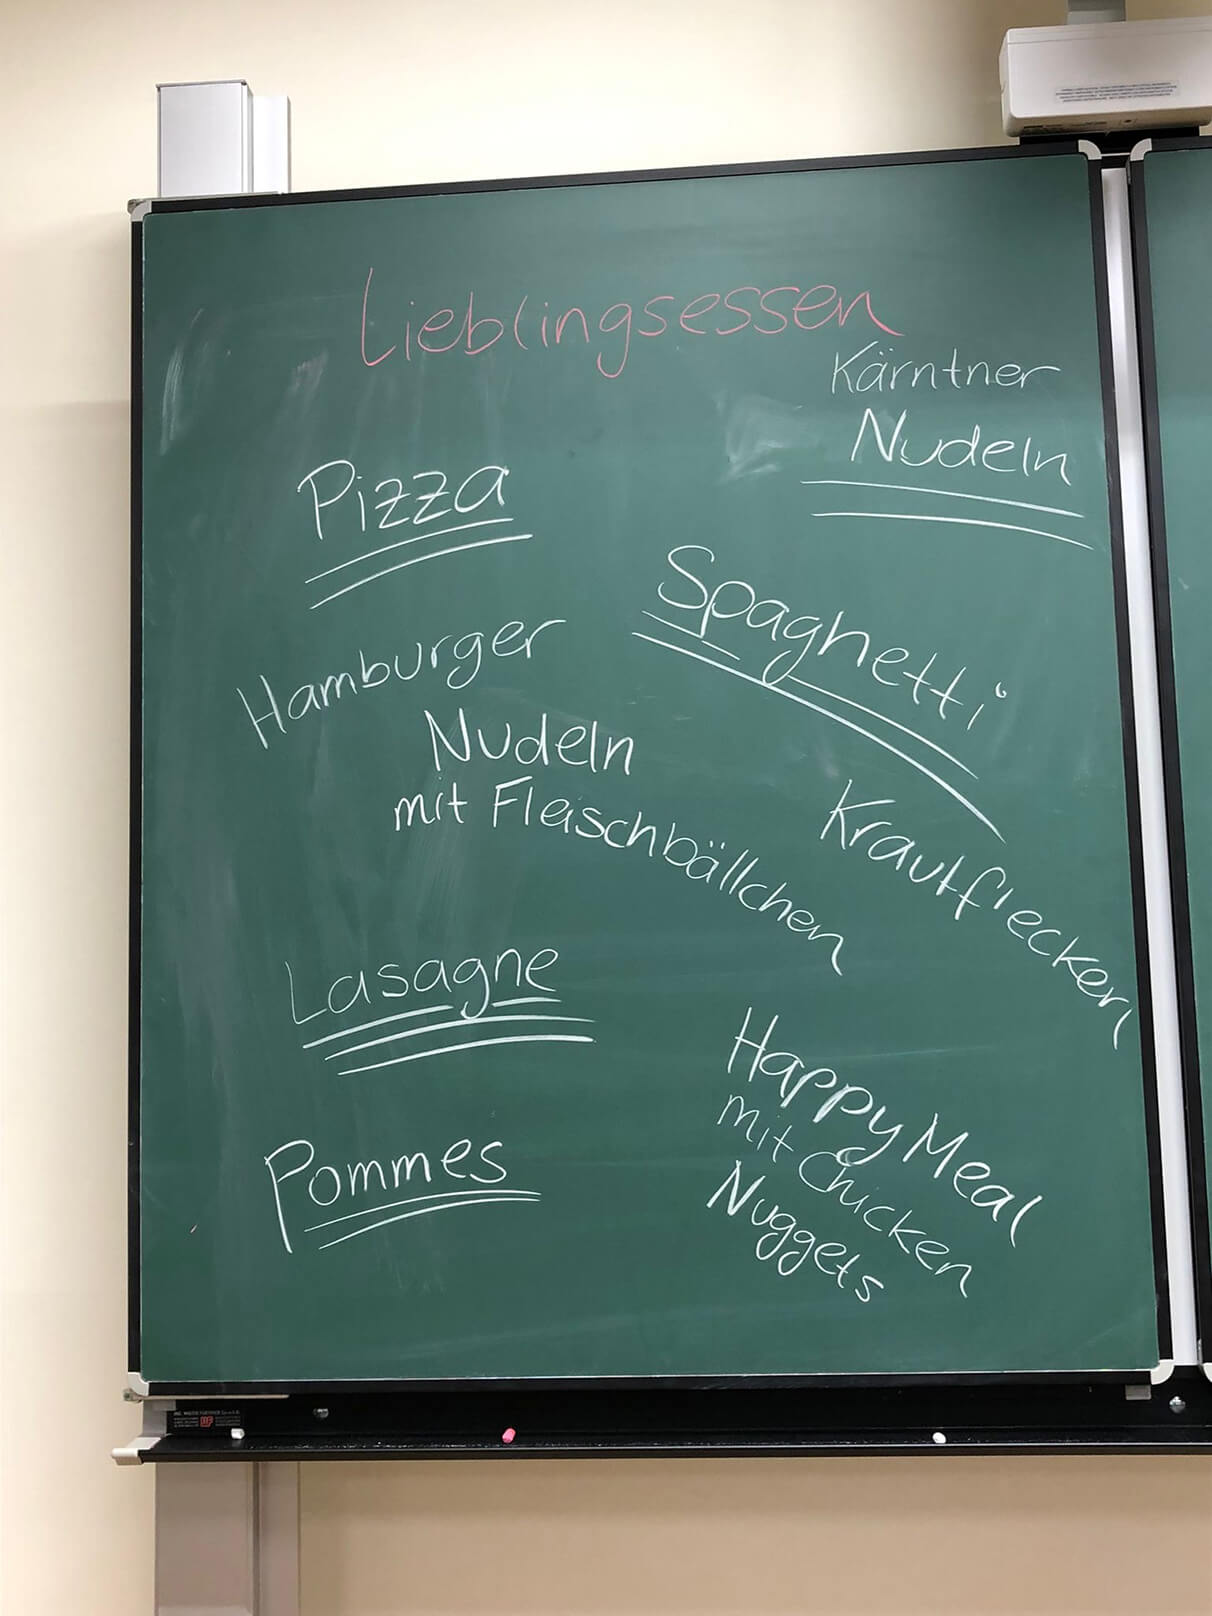 Lieblingsessen
Kärntner
Nudeln
Pizza
Spaghetti
Hamburger
Nudeln
mit Fleischbällchen
Krautfleckerl
Lasagne
Happy Meal
mit Chicken
Nuggets
Pommes